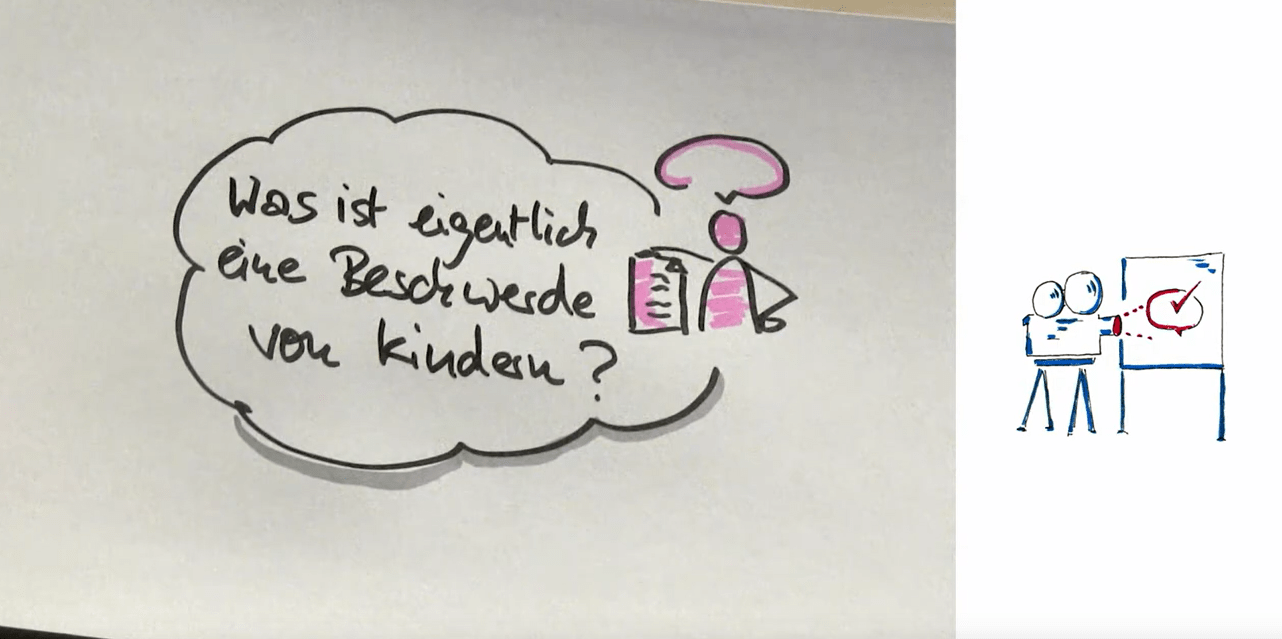 Was ist eigentlich
eine Beschwerde
von Kindern?